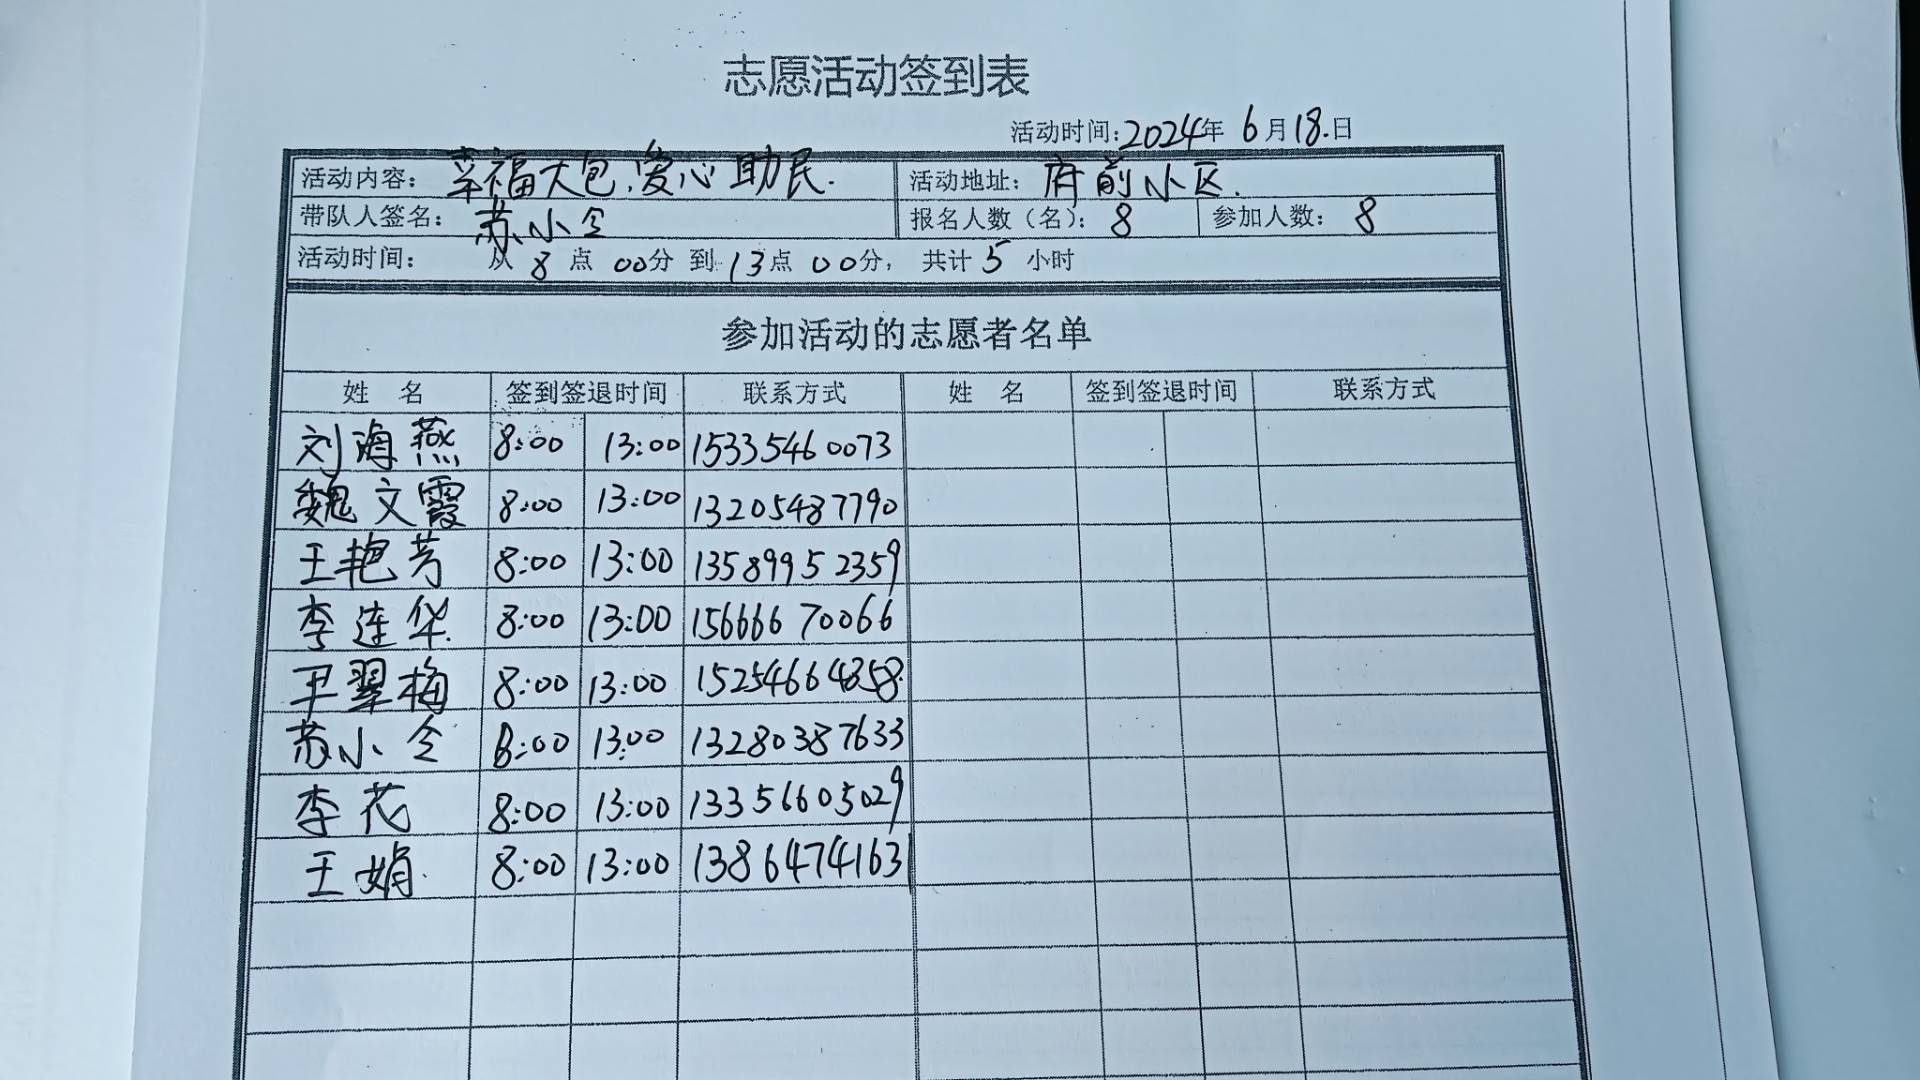 志愿活动签到表
活动时间:2024年 6月18.日
活动内容: 幸福大包,爱心助民. 活动地址: 府前小区.
带队人签名: 苏小令 报名人数(名): 8 参加人数: 8
活动时间: 从 8 点 00分 到 13点 00分, 共计 5 小时
参加活动的志愿者名单
姓 名 签到签退时间 联系方式 姓 名 签到签退时间 联系方式
刘海燕 8:00 13:00 15335460073
魏文霞 8:00 13:00 13205487790
王艳芳 8:00 13:00 13589952359
李连华 8:00 13:00 15666670066
翠梅 8:00 13:00 15254664358
苏小令 8:00 13:00 13280387633
李花 8:00 13:00 13356605029
王娟 8:00 13:00 13864741631